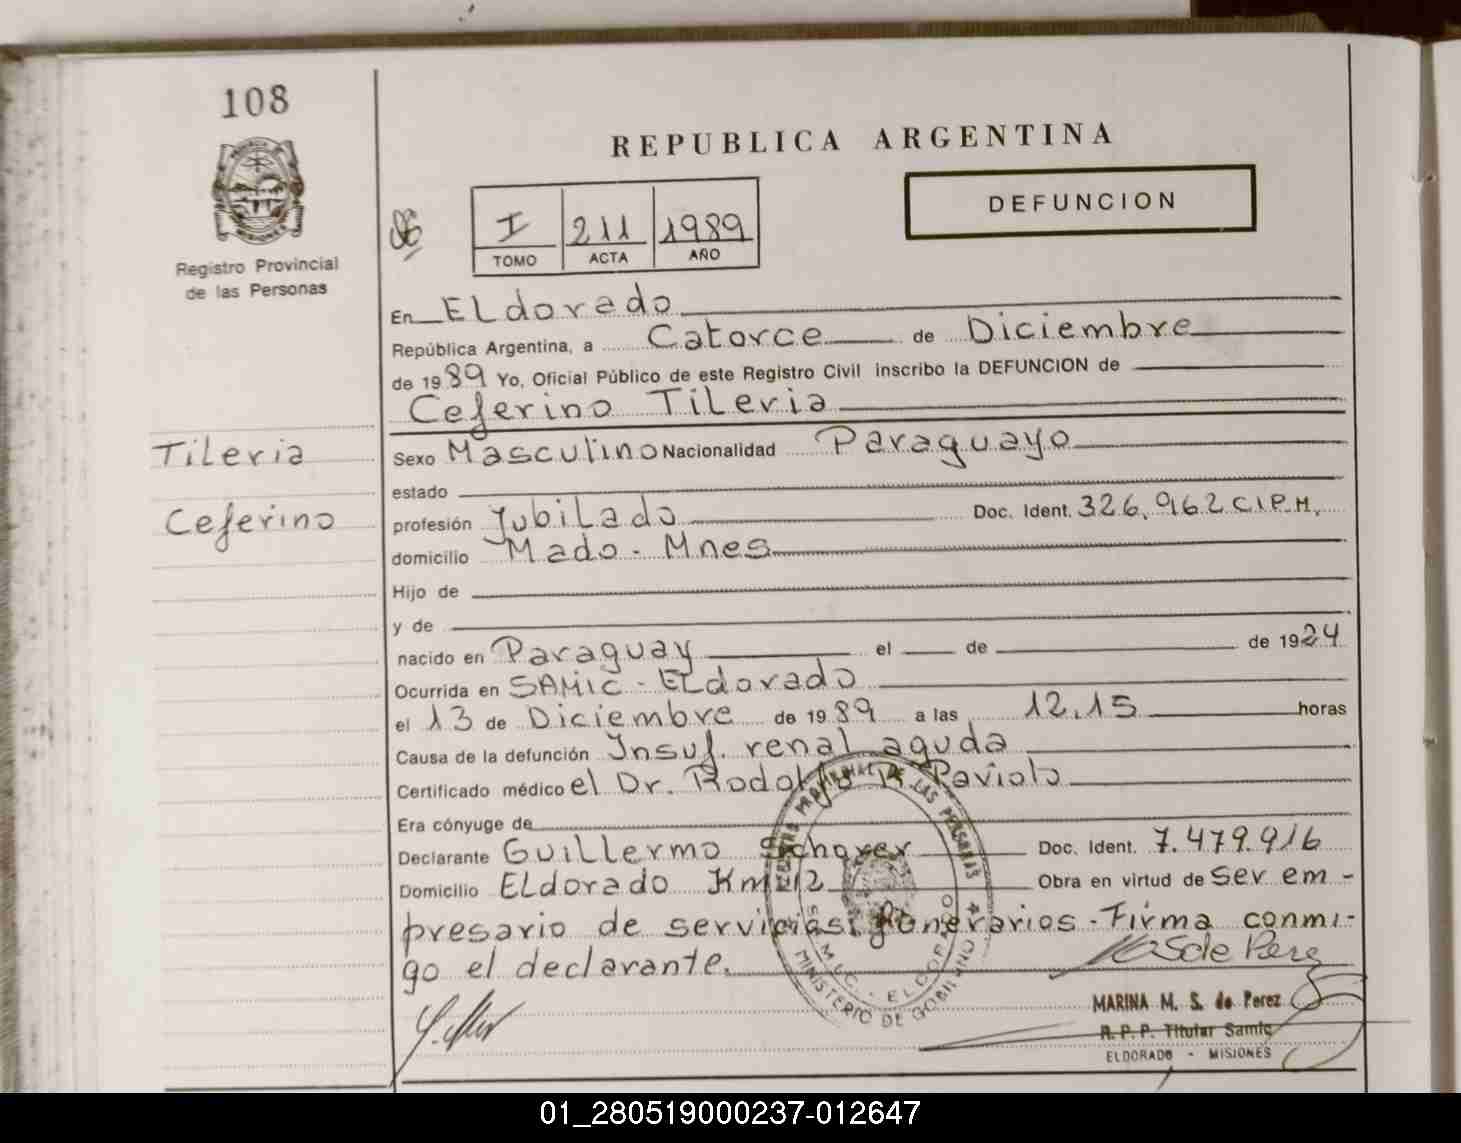 108
REPUBLICA ARGENTINA
DEFUNCION
I 211 1989
TOMO ACTA AÑO
Registro Provincial
de las Personas
En Eldorado
República Argentina, a Catorce de Diciembre
de 1989 Yo, Oficial Público de este Registro Civil inscribo la DEFUNCION de
Ceferino Tileria
Tileria
Ceferino
Sexo Masculino Nacionalidad Paraguayo
estado
profesión Jubilado Doc. Ident. 326.962 C.I.P.M.
domicilio Mado - Mnes
Hijo de
y de
nacido en Paraguay el de de 1924
Ocurrida en SAMIC - Eldorado
el 13 de Diciembre de 1989 a las 12,15 horas
Causa de la defunción Insuf. renal aguda
Certificado médico el Dr. Rodolfo R. Paviolo
Era cónyuge de
Declarante Guillermo Doc. Ident. 7.479.916
Domicilio Eldorado Km 12 Obra en virtud de ser em-
presario de servicios funerarios - Firma conmi-
go el declarante.
MARINA M. S. de Perez
R. P. P. Titular Samic
ELDORADO - MISIONES
01_280519000237-012647